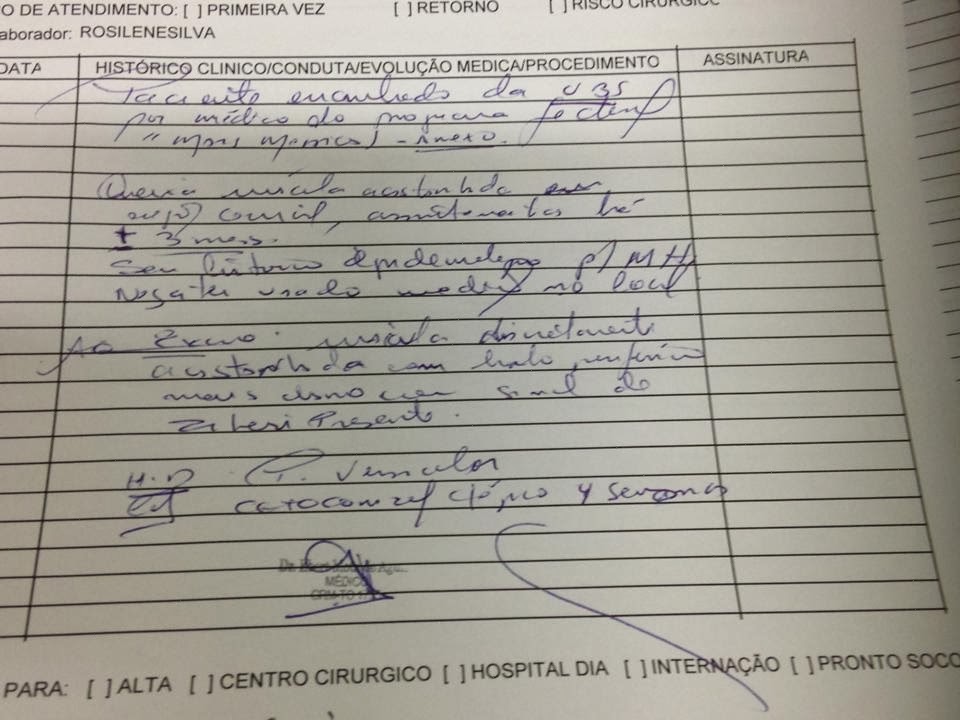 O DE ATENDIMENTO: [ ] PRIMEIRA VEZ [ ] RETORNO [ ] RISCO CIRURGICO
aborador: ROSILENESILVA
DATA HISTÓRICO CLINICO/CONDUTA/EVOLUÇÃO MEDICA/PROCEDIMENTO ASSINATURA
Paciente da UBS
por médico do programa
"mais médicos) - Anexo.
mácula acastanhada
assintomática há
± 3 meses.
Sem história epidemiológica p/ MH
no local
Ao Exame: mácula discretamente
acastanhada com halo periférico
mais com sinal de
Zileri Presente.
H.D P. Versicolor
cetoconazol tópico 4 semanas
MÉDICO
CRM-TO
PARA: [ ] ALTA [ ] CENTRO CIRURGICO [ ] HOSPITAL DIA [ ] INTERNAÇÃO [ ] PRONTO SOCO